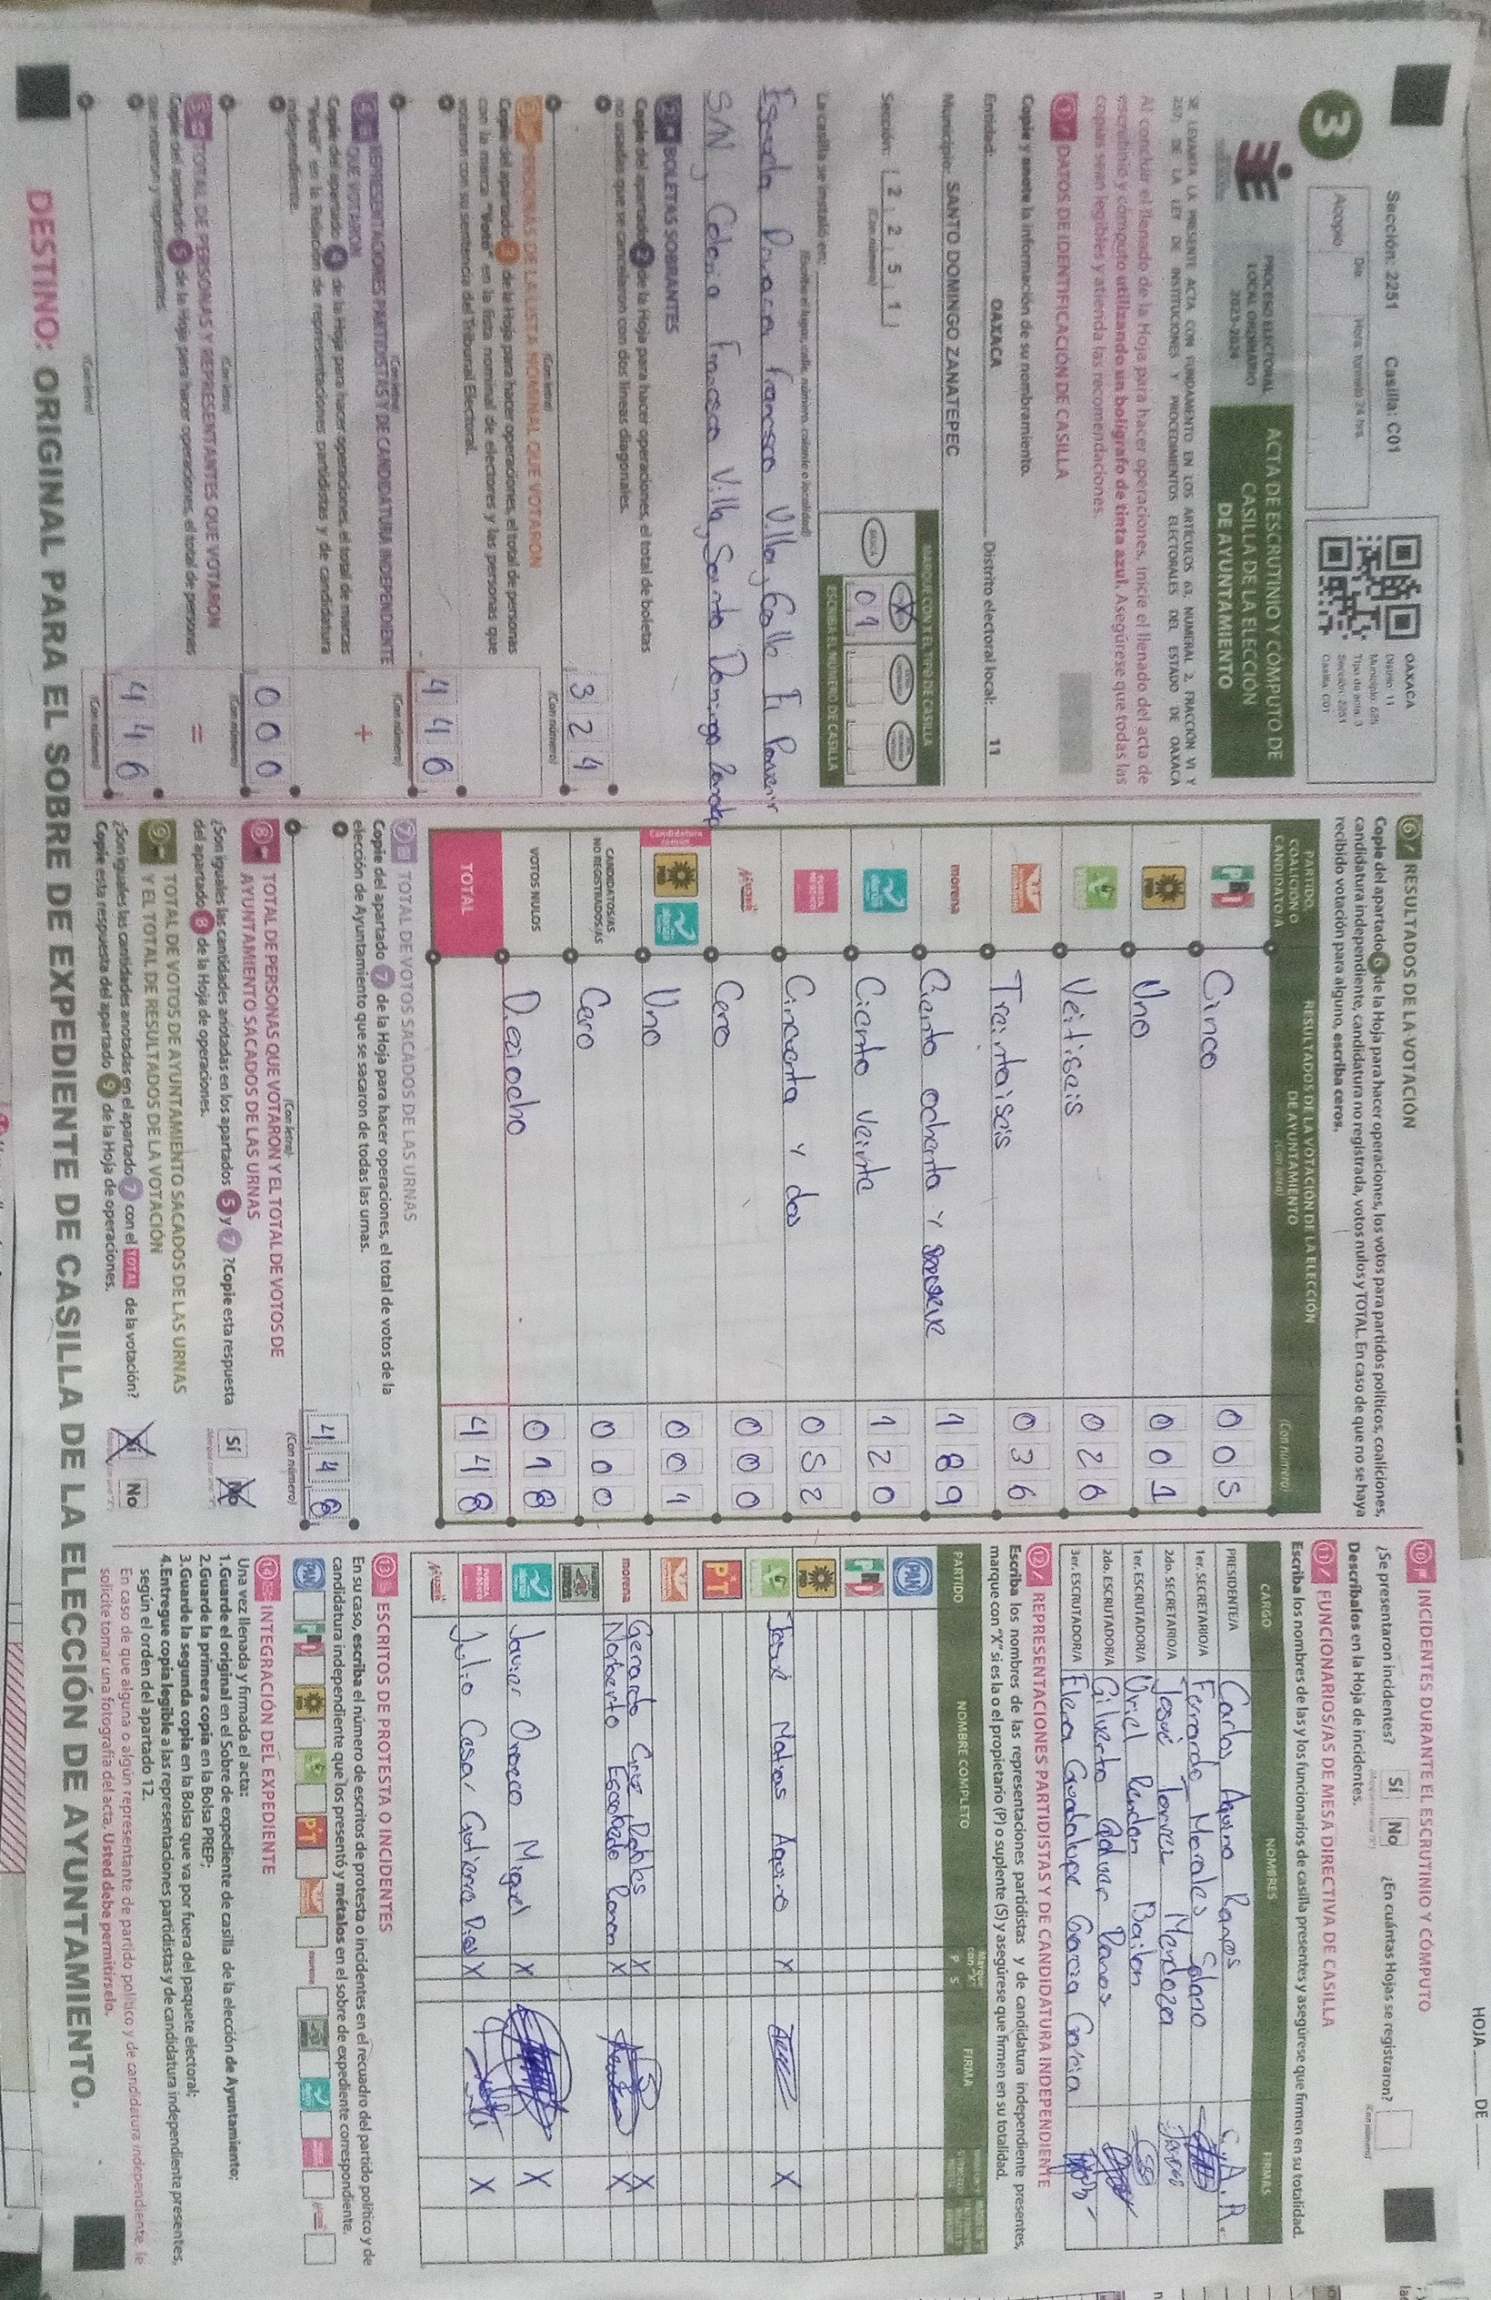 HOJA ____ DE ____
Sección: 2251 Casilla: C01
Día: Hora: formato 24 hrs.
Acopio
3
OAXACA
Distrito: 11
Tipo de acta: 3
Sección: 2251
Casilla: C01
PROCESO ELECTORAL
LOCAL ORDINARIO
2023-2024
ACTA DE ESCRUTINIO Y CÓMPUTO DE
CASILLA DE LA ELECCIÓN
DE AYUNTAMIENTO
SE LEVANTA LA PRESENTE ACTA CON FUNDAMENTO EN LOS ARTÍCULOS 63, NUMERAL 2, FRACCIÓN VI Y
257; DE LA LEY DE INSTITUCIONES Y PROCEDIMIENTOS ELECTORALES DEL ESTADO DE OAXACA
Al concluir el llenado de la Hoja para hacer operaciones, inicie el llenado del acta de
escrutinio y cómputo utilizando un bolígrafo de tinta azul. Asegúrese que todas las
copias sean legibles y atienda las recomendaciones.
1 DATOS DE IDENTIFICACIÓN DE CASILLA
Copie y anote la información de su nombramiento.
Entidad: OAXACA Distrito electoral local: 11
Municipio: SANTO DOMINGO ZANATEPEC
Sección: 2 2 5 1
(Con número)
MARQUE CON X EL TIPO DE CASILLA
BÁSICA
ESCRIBA EL NÚMERO DE CASILLA
01
La casilla se instaló en:
(Escriba el lugar, calle, número, colonia o localidad)
Escuela Primaria Francisco Villa, Calle El Porvenir
S/N, Colonia Francisco Villa, Santo Domingo Zanatepec
2 BOLETAS SOBRANTES
Copie del apartado 2 de la Hoja para hacer operaciones, el total de boletas
no usadas que se cancelaron con dos líneas diagonales.
3 2 4
(Con letra) (Con número)
3 PERSONAS DE LA LISTA NOMINAL QUE VOTARON
Copie del apartado 3 de la Hoja para hacer operaciones, el total de personas
con la marca "Votó" en la lista nominal de electores y las personas que
votaron con su sentencia del Tribunal Electoral.
4 4 6
(Con letra) (Con número)
4 REPRESENTACIONES PARTIDISTAS Y DE CANDIDATURA INDEPENDIENTE
QUE VOTARON
+
Copie del apartado 4 de la Hoja para hacer operaciones, el total de marcas
"Votó" en la Relación de representaciones partidistas y de candidatura
independiente.
0 0 0
(Con letra) (Con número)
5 TOTAL DE PERSONAS Y REPRESENTANTES QUE VOTARON
=
Copie del apartado 5 de la Hoja para hacer operaciones, el total de personas
que votaron y representantes.
4 4 6
(Con letra) (Con número)
6 RESULTADOS DE LA VOTACIÓN
Copie del apartado 6 de la Hoja para hacer operaciones, los votos para partidos políticos, coaliciones,
candidatura independiente, candidatura no registrada, votos nulos y TOTAL. En caso de que no se haya
recibido votación para alguno, escriba ceros.
PARTIDO,
COALICIÓN O
CANDIDATO/A
RESULTADOS DE LA VOTACIÓN DE LA ELECCIÓN
DE AYUNTAMIENTO
(Con letra) (Con número)
PRI Cinco 0 0 5
PRD Uno 0 0 1
Veitiseis 0 2 6
Treintaiseis 0 3 6
morena Ciento ochenta y nueve 1 8 9
Ciento veinte 1 2 0
Cincuenta y dos 0 5 2
Cero 0 0 0
Candidatura común
PRD Uno 0 0 1
CANDIDATOS/AS
NO REGISTRADOS/AS Cero 0 0 0
VOTOS NULOS Dieciocho 0 1 8
TOTAL 4 4 8
7 TOTAL DE VOTOS SACADOS DE LAS URNAS
Copie del apartado 7 de la Hoja para hacer operaciones, el total de votos de la
elección de Ayuntamiento que se sacaron de todas las urnas.
4 4 8
(Con letra) (Con número)
8 TOTAL DE PERSONAS QUE VOTARON Y EL TOTAL DE VOTOS DE
AYUNTAMIENTO SACADOS DE LAS URNAS
¿Son iguales las cantidades anotadas en los apartados 5 y 7 ?Copie esta respuesta
del apartado 8 de la Hoja de operaciones.
Sí No
9 TOTAL DE VOTOS DE AYUNTAMIENTO SACADOS DE LAS URNAS
Y EL TOTAL DE RESULTADOS DE LA VOTACIÓN
¿Son iguales las cantidades anotadas en el apartado 7 con el TOTAL de la votación?
Copie esta respuesta del apartado 9 de la Hoja de operaciones.
Sí No
10 INCIDENTES DURANTE EL ESCRUTINIO Y CÓMPUTO
¿Se presentaron incidentes? Sí No ¿En cuántas Hojas se registraron?
Descríbalos en la Hoja de incidentes.
11 FUNCIONARIOS/AS DE MESA DIRECTIVA DE CASILLA
Escriba los nombres de las y los funcionarios de casilla presentes y asegúrese que firmen en su totalidad.
CARGO NOMBRES FIRMAS
PRESIDENTE/A Carlos Aquino Ramos C.A.R.
1er. SECRETARIO/A Fernando Morales Solano
2do. SECRETARIO/A Josué Torres Mendoza
1er. ESCRUTADOR/A Uriel Rendon Bailon
2do. ESCRUTADOR/A Gilverto Ramos
3er. ESCRUTADOR/A Elena Guadalupe Garcia Garcia
12 REPRESENTACIONES PARTIDISTAS Y DE CANDIDATURA INDEPENDIENTE
Escriba los nombres de las representaciones partidistas y de candidatura independiente presentes,
marque con "X" si es la o el propietario (P) o suplente (S) y asegúrese que firmen en su totalidad.
PARTIDO NOMBRE COMPLETO P S FIRMA
PAN
PRI
PRD
Josué Matias Aquino X X
PT
morena Gerardo Cruz Robles X X
Norberto Escobedo Roman X X
Javier Orozco Miguel X X
Julio Cesar Gutierrez X X
13 ESCRITOS DE PROTESTA O INCIDENTES
En su caso, escriba el número de escritos de protesta o incidentes en el recuadro del partido político y de
candidatura independiente que los presentó y métalos en el sobre de expediente correspondiente.
PAN PRI PRD PT morena
14 INTEGRACIÓN DEL EXPEDIENTE
Una vez llenada y firmada el acta:
1.Guarde el original en el Sobre de expediente de casilla de la elección de Ayuntamiento;
2.Guarde la primera copia en la Bolsa PREP;
3.Guarde la segunda copia en la Bolsa que va por fuera del paquete electoral;
4.Entregue copia legible a las representaciones partidistas y de candidatura independiente presentes,
según el orden del apartado 12.
En caso de que alguna o algún representante de partido político y de candidatura independiente, le
solicite tomar una fotografía del acta, Usted debe permitírselo.
DESTINO: ORIGINAL PARA EL SOBRE DE EXPEDIENTE DE CASILLA DE LA ELECCIÓN DE AYUNTAMIENTO.